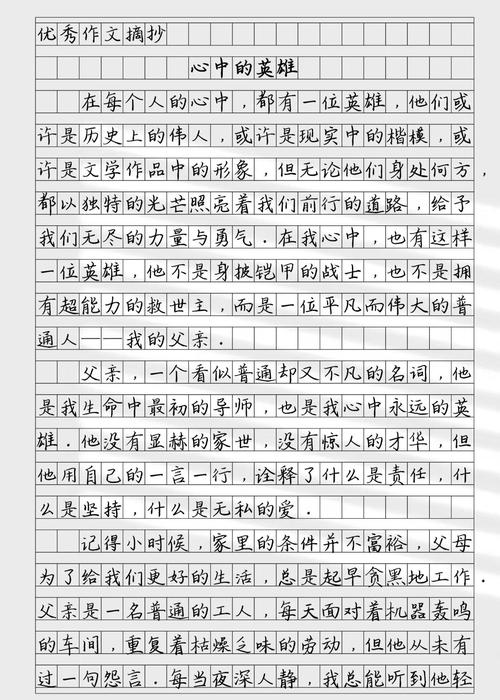 优秀作文摘抄
心中的英雄
在每个人的心中，都有一位英雄，他们或
许是历史上的伟人，或许是现实中的楷模，或
许是文学作品中的形象，但无论他们身处何方，
都以独特的光芒照亮着我们前行的道路，给予
我们无尽的力量与勇气．在我心中，也有这样
一位英雄，他不是身披铠甲的战士，也不是拥
有超能力的救世主，而是一位平凡而伟大的普
通人——我的父亲．
父亲，一个看似普通却又不凡的名词，他
是我生命中最初的导师，也是我心中永远的英
雄．他没有显赫的家世，没有惊人的才华，但
他用自己的一言一行，诠释了什么是责任，什
么是坚持，什么是无私的爱．
记得小时候，家里的条件并不富裕，父母
为了给我们更好的生活，总是起早贪黑地工作．
父亲是一名普通的工人，每天面对着机器轰鸣
的车间，重复着枯燥乏味的劳动，但他从未有
过一句怨言．每当夜深人静，我总能听到他轻